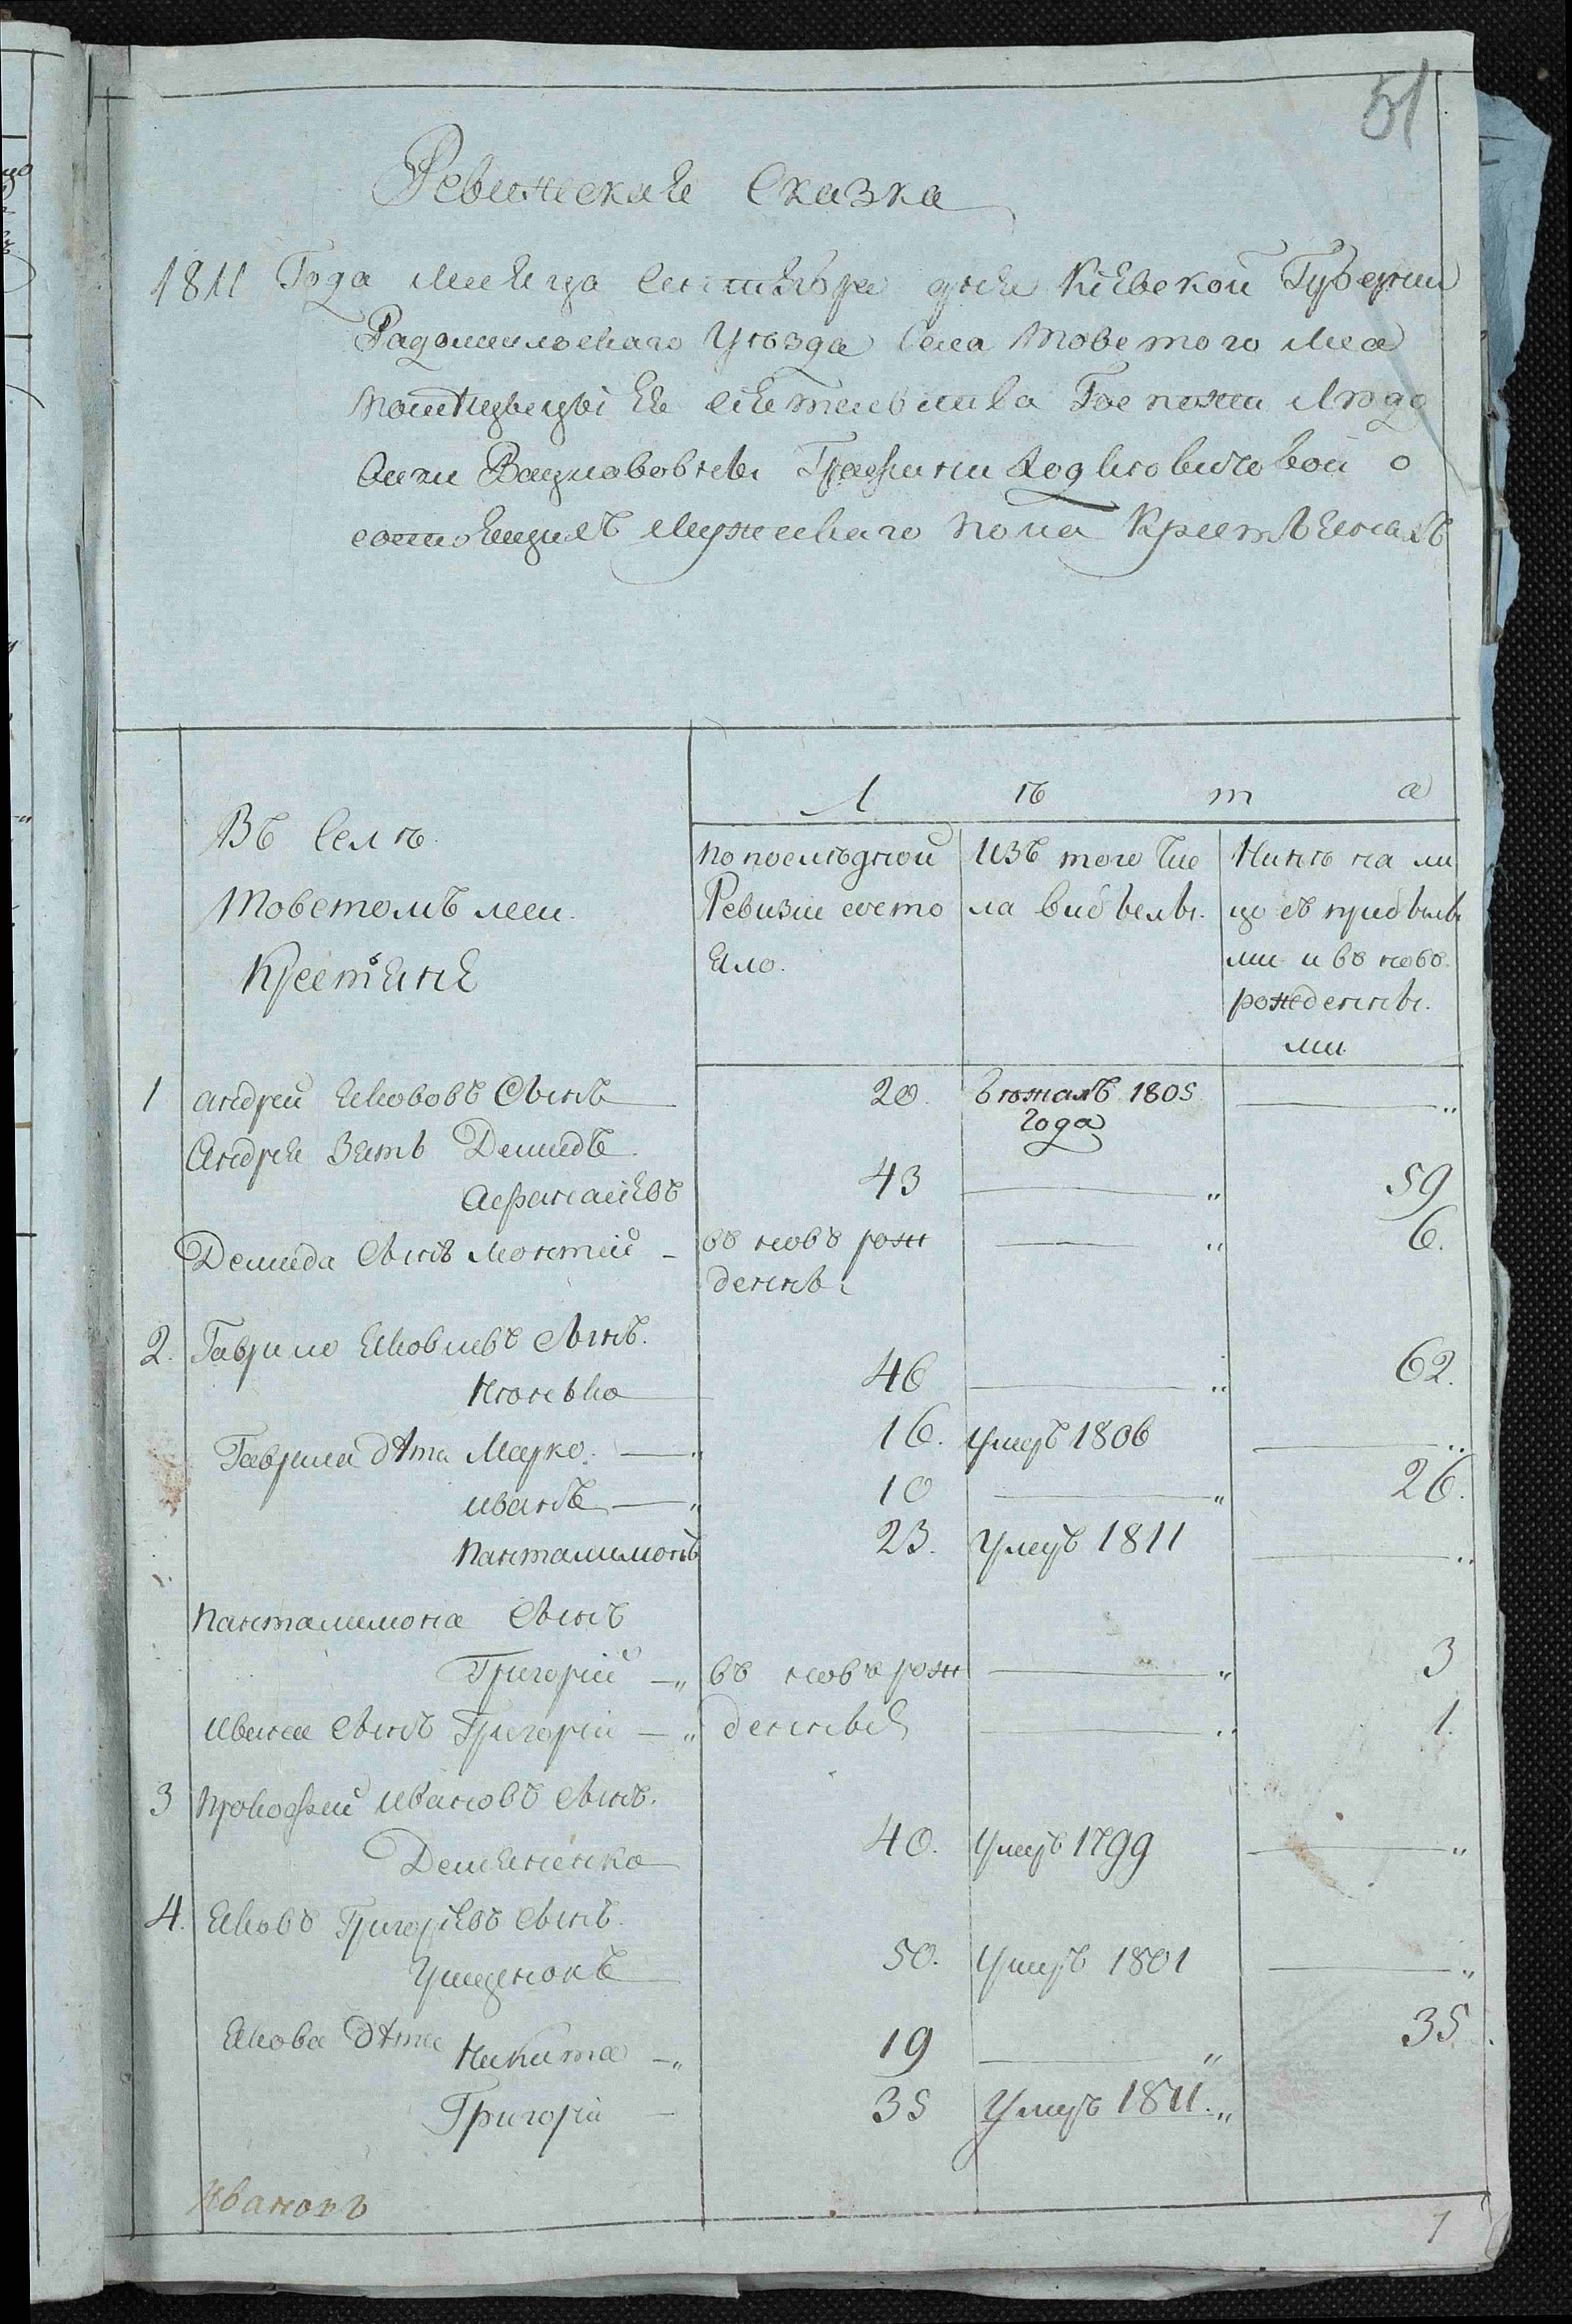 51
Ревижская Сказка
1811 Года месяца Сентября дня Кіевской Губерніи
Радомысльскаго Уѣзда Села Товстого Леса
помѣщицы Ея сіятельства Госпожи Людо
вики Вацлавовны Графини Ходкевичовой о
состоящихъ мужескаго пола Крестьянахъ
Въ Селѣ
Товстомъ леси
Крестьяне
Л ѣ т а
По последной
Ревизіи состо
яло.
Изъ того чис
ла выбыло.
Нинѣ на ли
цо съ прибылы
ми и въ новь
рожденны
ми
1 Андрей Якововъ Сынъ 20. в бѣгахъ 1805 года
Андрея Зять Демидъ
Афанасіевъ 43 59
Демида Сынъ Монтей въ новъ рож 6.
денны
2. Гаврило Яковлевъ Сынъ
46 62.
Гаврила дѣти Марко 16. умеръ 1806
Иванъ 10 26.
Панталимонъ 23. Умеръ 1811
Панталимона Сынъ
Григорій въ новѣ рож 3
Ивана Сынъ Григорій денные 1.
3 Прокофей Ивановъ Сынъ.
Демяненко 40. Умеръ 1799
4. Яковъ Григоріевъ Сынъ.
50. Умеръ 1801
Якова дѣти Никита 19 35.
Григорій 35 Умеръ 1811.
1